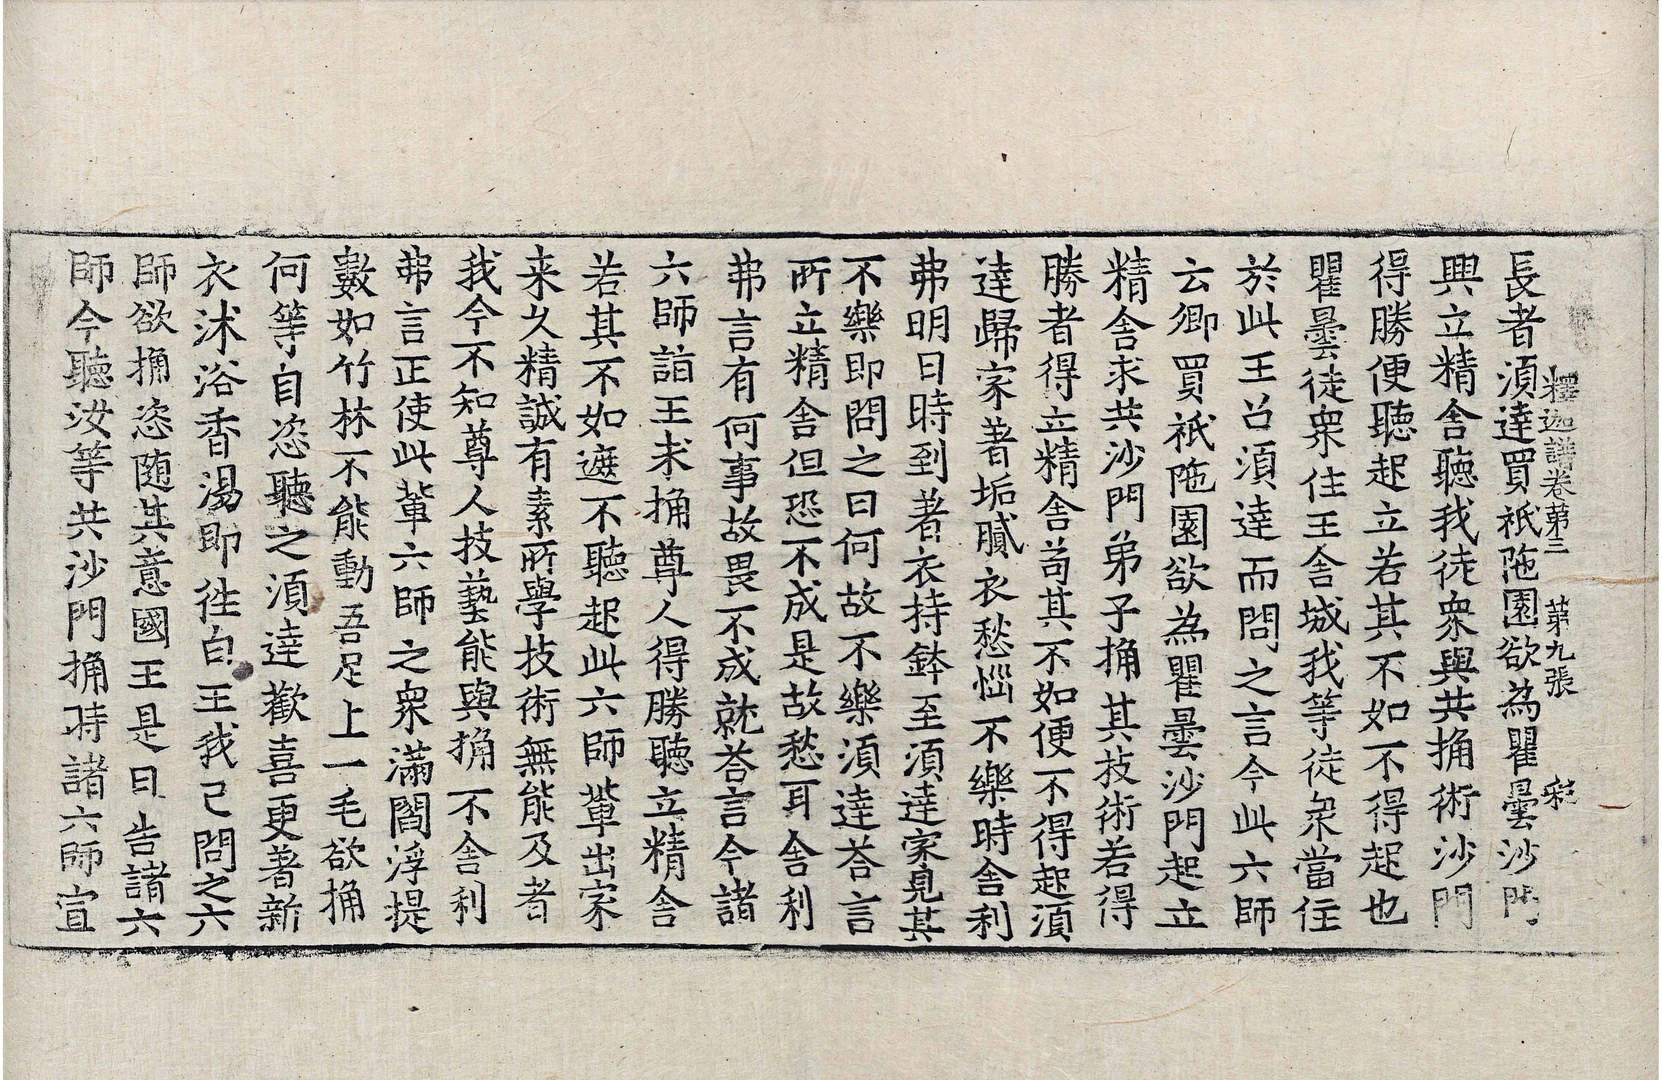 釋迦譜卷第三 第九張 彩
長者湏達買祇陁園欲為瞿曇沙門
興立精舍聽我徒衆與共捔術沙門
得勝便聽起立若其不如不得起也
瞿曇徒衆住王舍城我等徒衆當住
於此王召湏達而問之言今此六師
云卿買祇陁園欲為瞿曇沙門起立
精舍求共沙門弟子捔其技術若得
勝者得立精舍苟其不如便不得起湏
達歸家著垢膩衣愁惱不樂時舍利
弗明日時到著衣持鉢至湏達家見其
不樂即問之曰何故不樂湏達荅言
所立精舍但恐不成是故愁耳舍利
弗言有何事故畏不成就荅言今諸
六師詣王求捔尊人得勝聽立精舍
若其不如遮不聽起此六師軰出家
来久精誠有素所學技術無能及者
我今不知尊人技藝能與捔不舍利
弗言正使此軰六師之衆滿閻浮提
數如竹林不能動吾足上一毛欲捔
何等自恣聽之湏達歡喜更著新
衣沐浴香湯即徃白王我已問之六
師欲捔恣随其意國王是日告諸六
師今聽汝等共沙門捔時諸六師宣